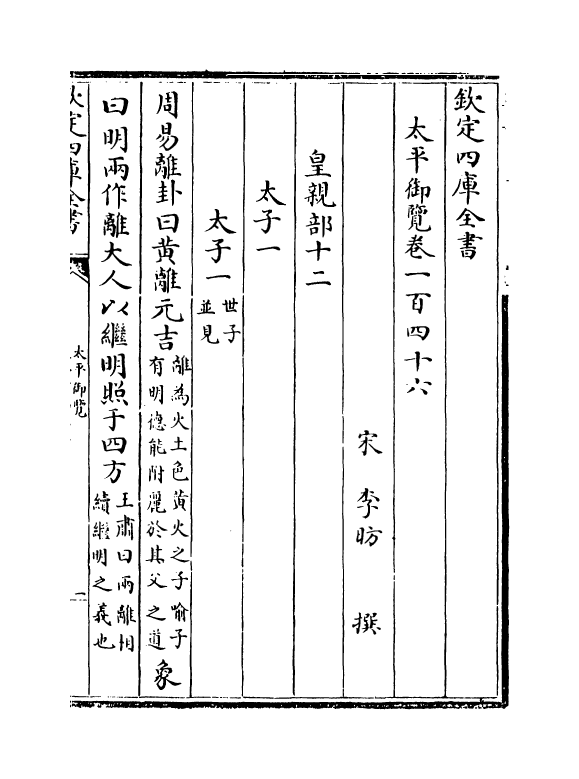 欽定四庫全書
太平御覽卷一百四十六
宋 李昉 撰
皇親部十二
太子一
太子一世子並見
周易離卦曰黄離元吉離為火土色黄火之子喻子有明德能附麗於其父之道象
曰明兩作離大人以繼明照于四方王肅曰兩離相續繼明之義也
欽定四庫全書
太平御覽
一